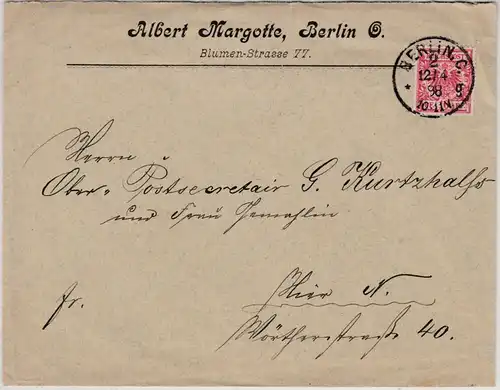 Albert Margotte, Berlin O.
Blumen-Strasse 77.
BERLIN, C.
2
12/4
98 g
10-11N.
Herrn u
Ober-Postsecretair G. Kurtzhalss
und Frau Gemahlin
Hier N.
fr.
Wörtherstraße 40.